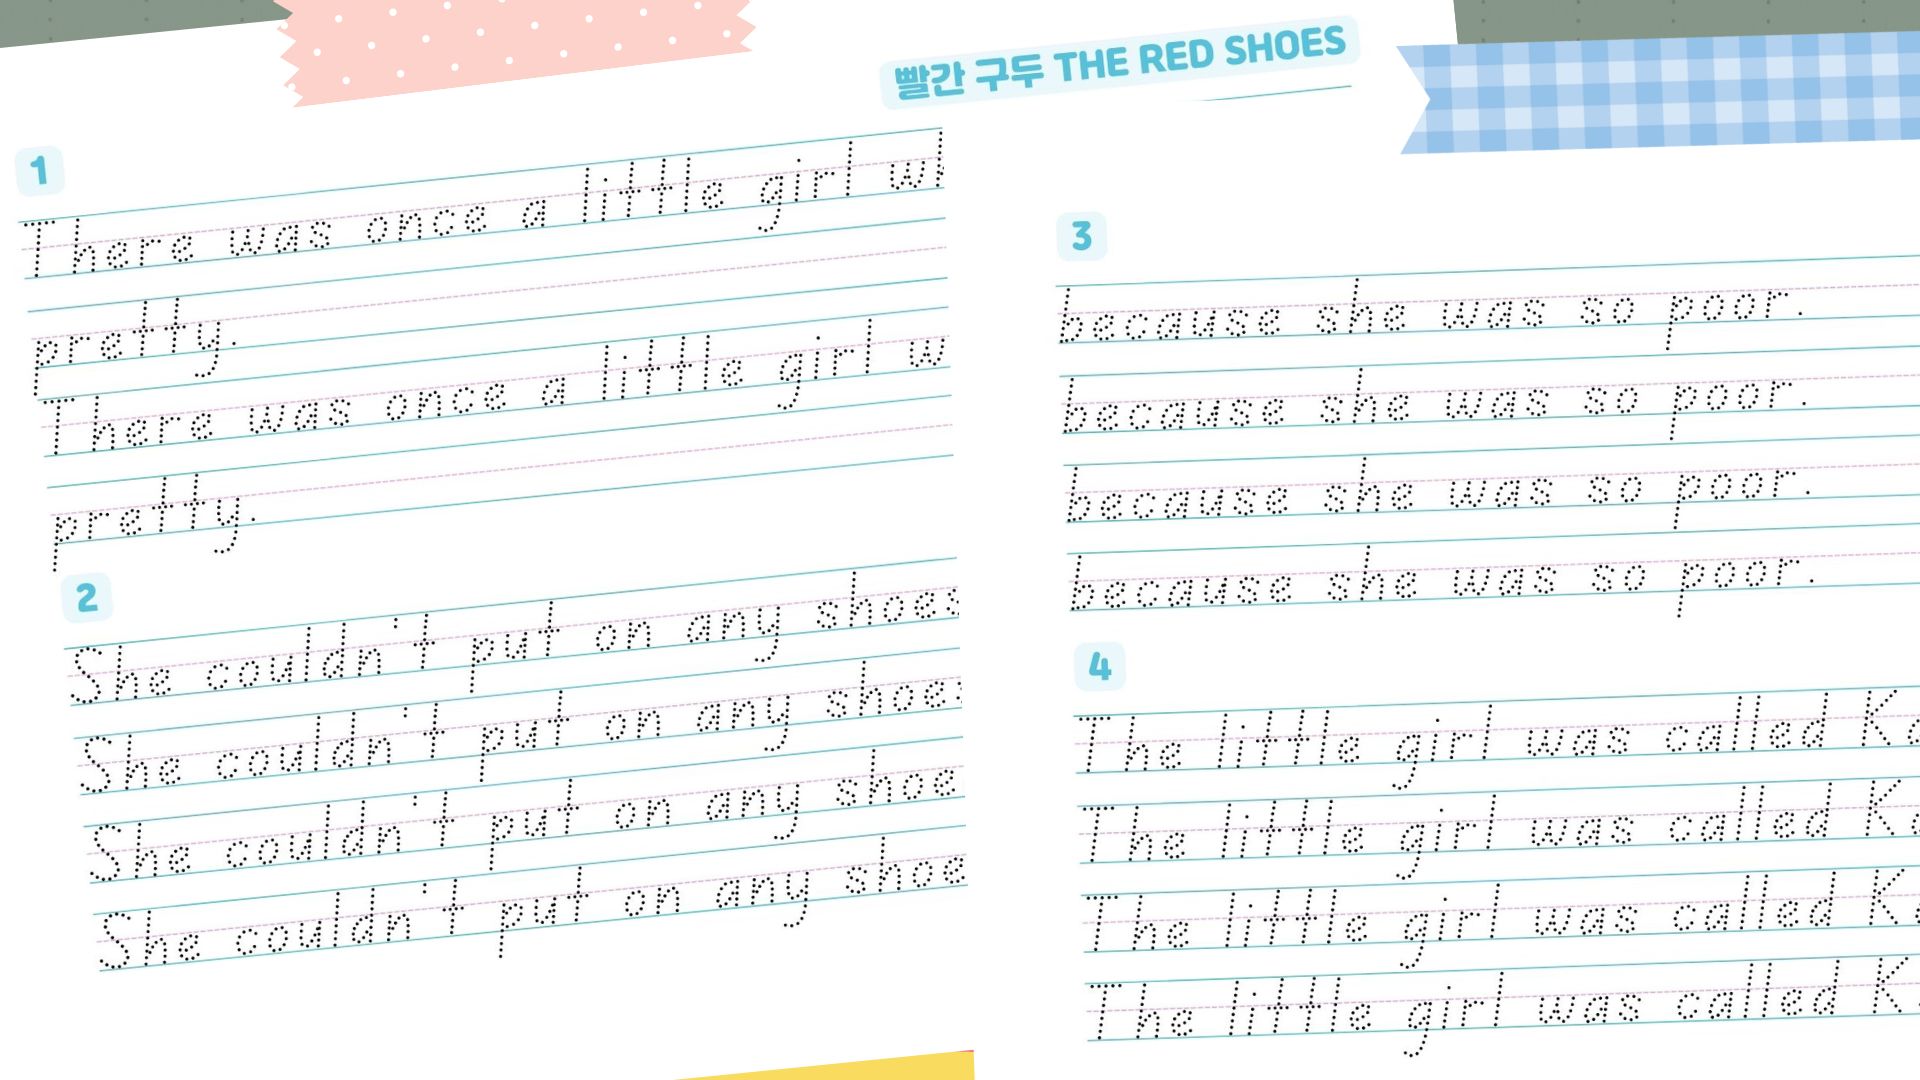 빨간 구두 THE RED SHOES
1
There was once a little girl
pretty.
There was once a little girl
pretty.
2
She couldn't put on any shoes
She couldn't put on any
She couldn't put on any
She couldn't put on any
3
because she was so poor.
because she was so poor.
because she was so poor.
because she was so poor.
4
The little girl was called
The little girl was called
The little girl was called
The little girl was called